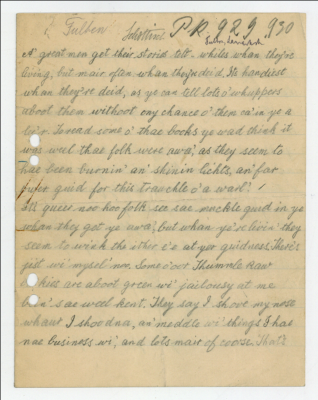 Fulton
Skellins P.R. 929.930
A' great men get their stories telt - whiles whan they're
living, but mair often whan they're deid. It's handiest
whan they're deid, as ye can tell lots o' whuppers
aboot them withoot ony chance o' them ca'in ye a
le'r. To read some o' thae books ye wad think it
was weel thae folk were awa', as they seem to
hae been burnin' an' shinin lichts, an' far
ower guid for this trauchle o' a warl'!
It's queer noo hoo folk see sae muckle guid in ye
whan they get ye awa', but whan ye're livin' they
seem to wink the ither e'e at yer guidness. There's
jist wi' mysel' noo. Some o' oor Thummle Raw
kids are aboot green wi' jailousy at me
bein' sae weel kent. They say I shove my nose
whaur I shoodna, an' meddle wi' things I hae
nae business wi', and lots mair of coorse. That's